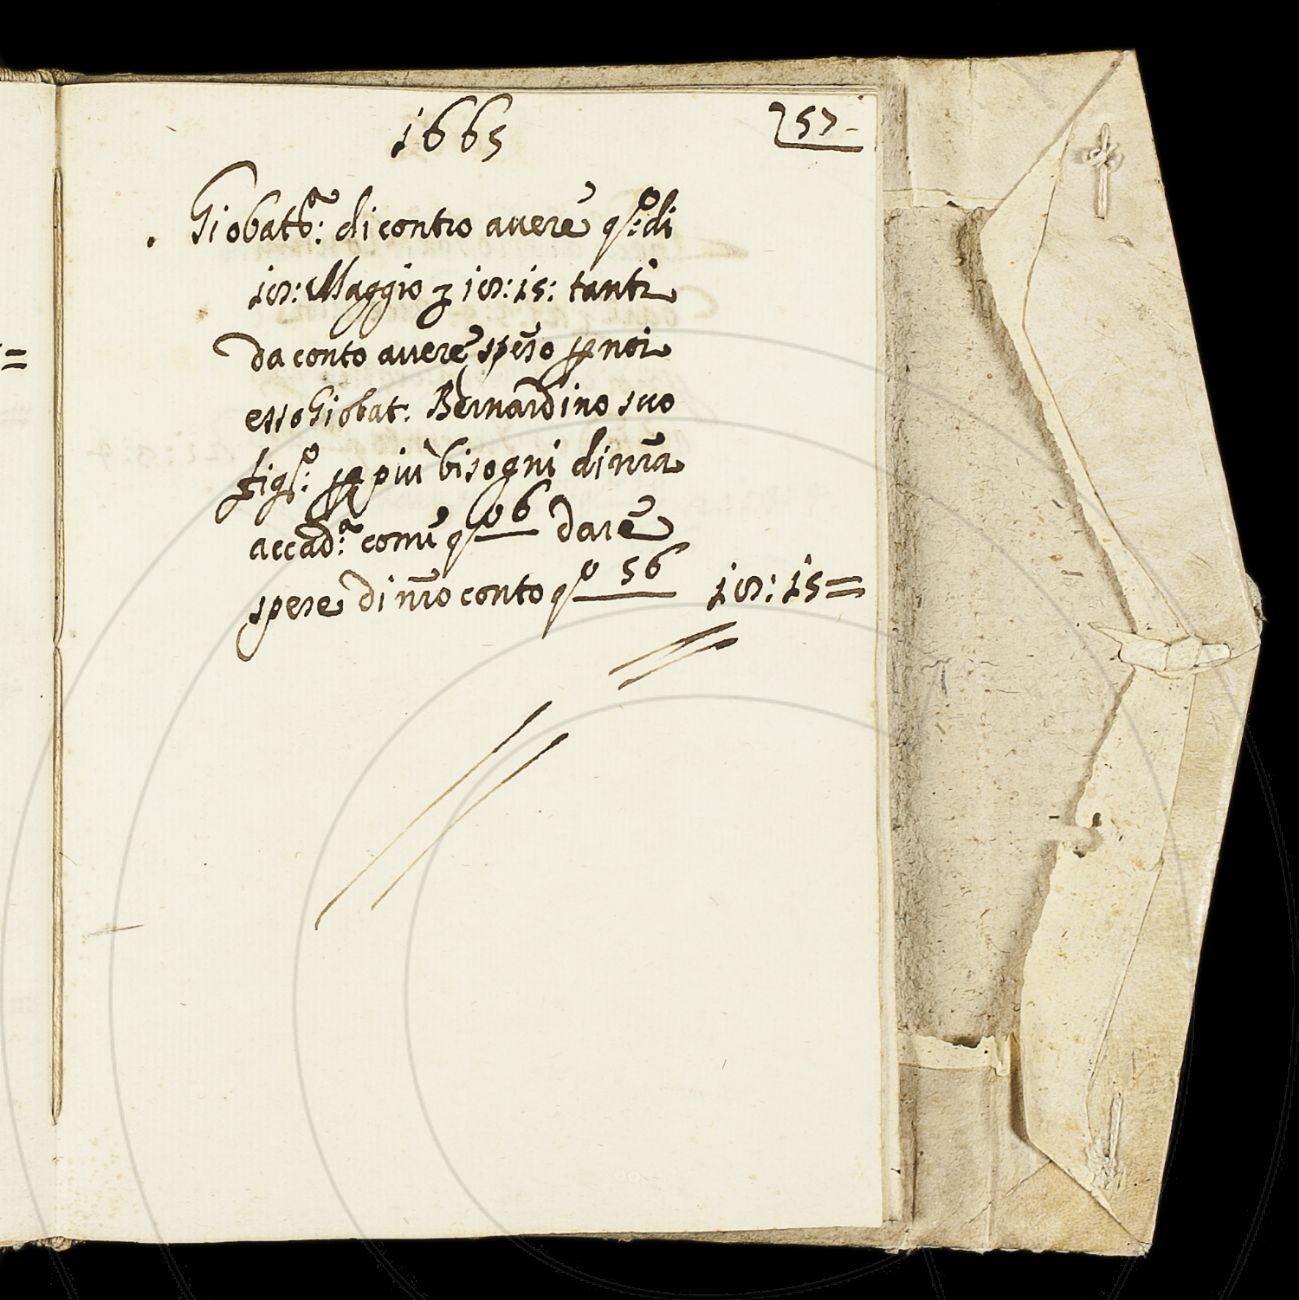 1665
257
Giobatta: di contro avere qsto: di
10: Maggio 10: 15: tanti
da conto avere speso per noi
esso Giobat: Bernardino suo
figlo: per più bisogni di nra
accada: come qsto 6 dare
spese di nro conto qsto 56 10: 15=